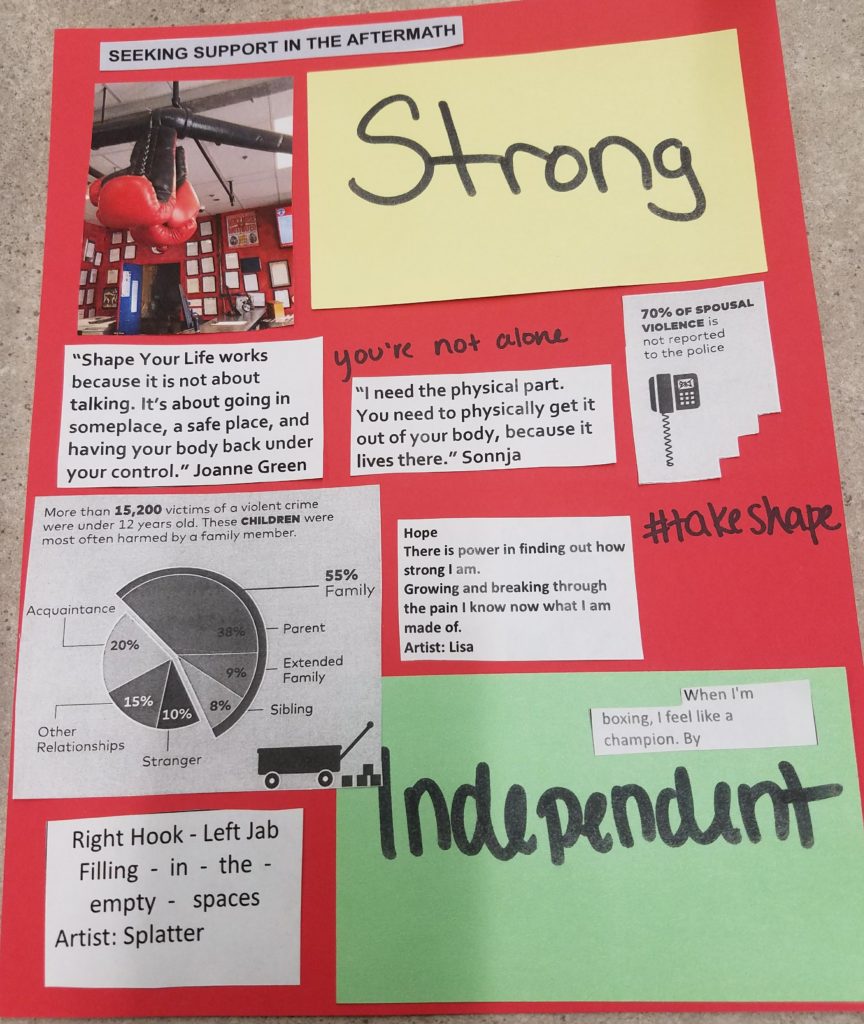 SEEKING SUPPORT IN THE AFTERMATH
Strong
you're not alone
70% OF SPOUSAL
VIOLENCE IS
not reported
to the police
"Shape Your Life works
because it is not about
talking. It's about going in
someplace, a safe place, and
having your body back under
your control." Joanne Green
"I need the physical part.
You need to physically get it
out of your body, because it
lives there." Sonnja
#takeshape
More than 15,200 victims of a violent crime
were under 12 years old. These CHILDREN were
most often harmed by a family member.
55%
Family
Acquaintance
20%
38%
Parent
9%
Extended
Family
8%
Sibling
15%
Other
Relationships
10%
Stranger
Hope
There is power in finding out how
strong I am.
Growing and breaking through
the pain I know now what I am
made of.
Artist: Lisa
When I'm
boxing, I feel like a
champion. By
Independent
Right Hook - Left Jab
Filling - in - the -
empty - spaces
Artist: Splatter